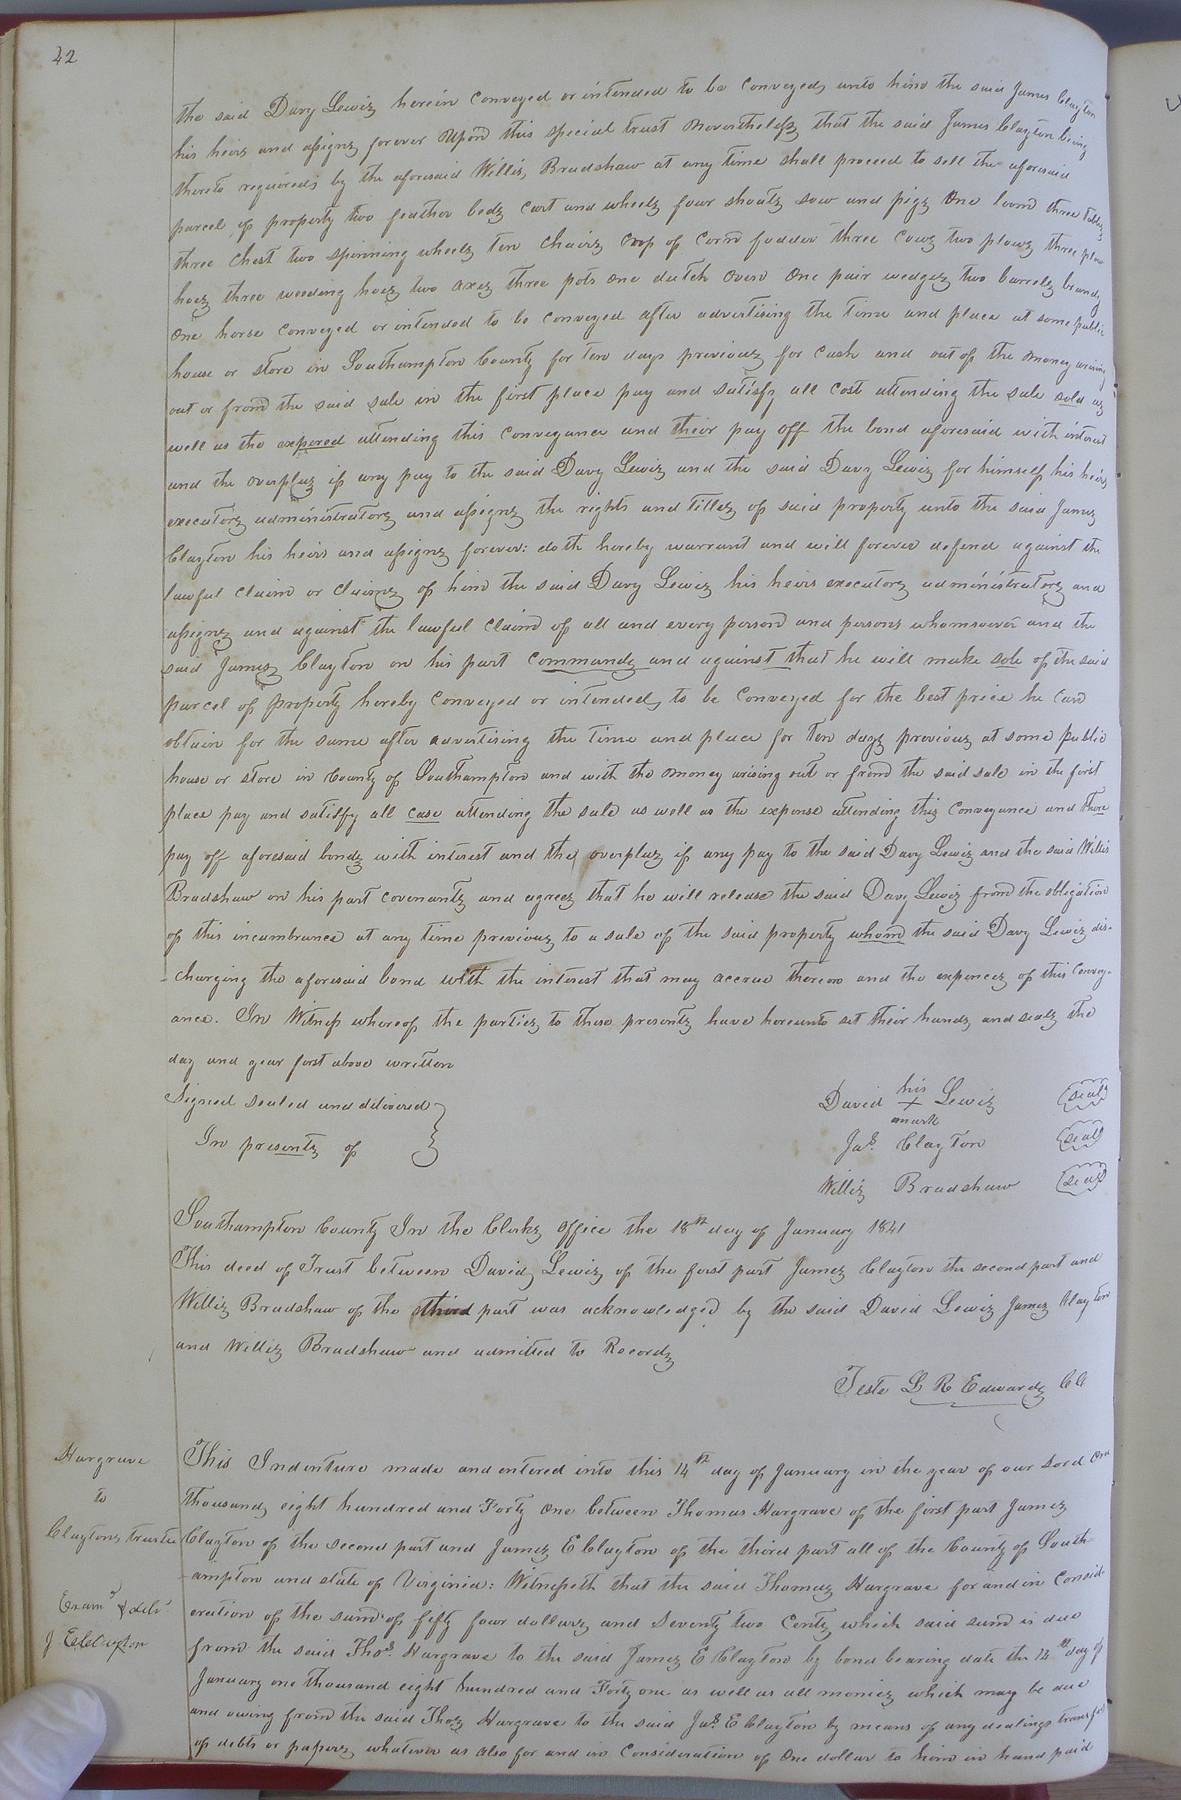 42
the said Davy Lewis herein conveyed or intended to be conveyed unto him the said James Clayton
his heirs and assigns forever Upon this special trust Nevertheless that the said James Clayton being
thereto required by the aforesaid Willis, Bradshaw at any time shall proceed to sell the aforesaid
parcel of property two feather beds cart and wheels four shoats sow and pigs One loom three tables
three chest two spinning wheels ten chairs crop of corn fodder three cows two plows three plow
hoes three weeding hoes two axes three pots one dutch oven One pair wedges two barrels brandy
One horse conveyed or intended to be conveyed after advertising the time and place at some public
house or store in Southampton County for ten days previous for cash and out of the money arising
out or from the said sale in the first place pay and satisfy all cost attending the sale sold as
well as the expered attending this conveyance and their pay off the bond aforesaid with interest
and the overplus if any pay to the said Davy Lewis and the said Davy Lewis for himself his heirs
executors administrators and assigns the rights and titles of said property unto the said James
Clayton his heirs and assigns forever: doth hereby warrant and will forever defend against the
lawful claim or claims of him the said Davy Lewis his heirs executors administrators and
assigns and against the lawful claim of all and every person and persons whomsoever and the
said James Clayton on his part commands and against that he will make sole of the said
parcel of property hereby conveyed or intended, to be conveyed for the best price he can
obtain for the same after advertising the time and place for ten days previous at some public
house or store in County of Southampton and with the money arising out or from the said sale in the first
place pay and satisfy all case attending the sale as well as the expense attending this conveyance and there
pay off aforesaid bonds with interest and the overplus if any pay to the said Davy Lewis and the said Willis
Bradshaw on his part covenants and agrees that he will release the said Davy Lewis from the obligation
of this incumbrance at any time previous to a sale of the said property whom the said Davy Lewis dis-
-charging the aforesaid bond with the interest that may accrue thereon and the expences of this convey-
ance. In Witness whereof the parties to these presents have hereunto set their hands and seals the
day and year first above written
Signed sealed and delivered
In presents of
David his X mark Lewis seal
Jas. Clayton seal
Willis Bradshaw seal
Southampton County In the Clerks office the 18th day of January 1841
This deed of Trust between David Lewis of the first part James Clayton the second part and
Willis Bradshaw of the third part was acknowledged by the said David Lewis James Clayton
and Willis Bradshaw and admitted to Records
Teste L R Edwards CC
Hargrave
to
Claytons trustee
Examd & deld
J E Clayton
This Indenture made and entered into this 14th day of January in the year of our Lord One
thousand eight hundred and Forty One between Thomas Hargrave of the first part James
Clayton of the second part and James E Clayton of the third part all of the County of South-
-ampton and state of Virginia: Witnesseth that the said Thomas Hargrave for and in consid-
eration of the sum of fifty four dollars and Seventy two Cents which said sum is due
from the said Thos. Hargrave to the said James E Clayton by bond bearing date the 12th day of
January one thousand eight hundred and Forty one as well as all monies which may be due
and owing from the said Thos Hargrave to the said Jas. E Clayton by means of any dealings transfer
of debts or papers whatever as also for and in Consideration of One dollar to him in hand paid